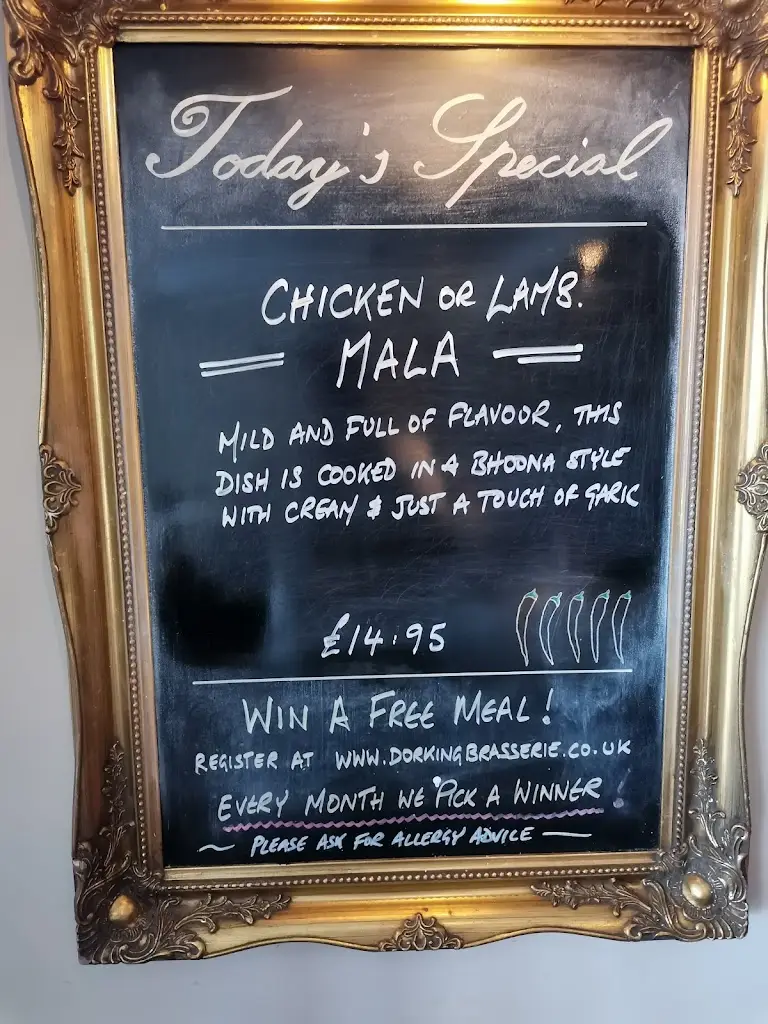 Today's Special
CHICKEN OR LAMB.
MALA
MILD AND FULL OF FLAVOUR, THIS
DISH IS COOKED IN A BHOONA STYLE
WITH CREAM & JUST A TOUCH OF GARIC
£14.95
WIN A FREE MEAL!
REGISTER AT WWW.DORKINGBRASSERIE.CO.UK
EVERY MONTH WE PICK A WINNER!
~ PLEASE ASK FOR ALLERGY ADVICE ~